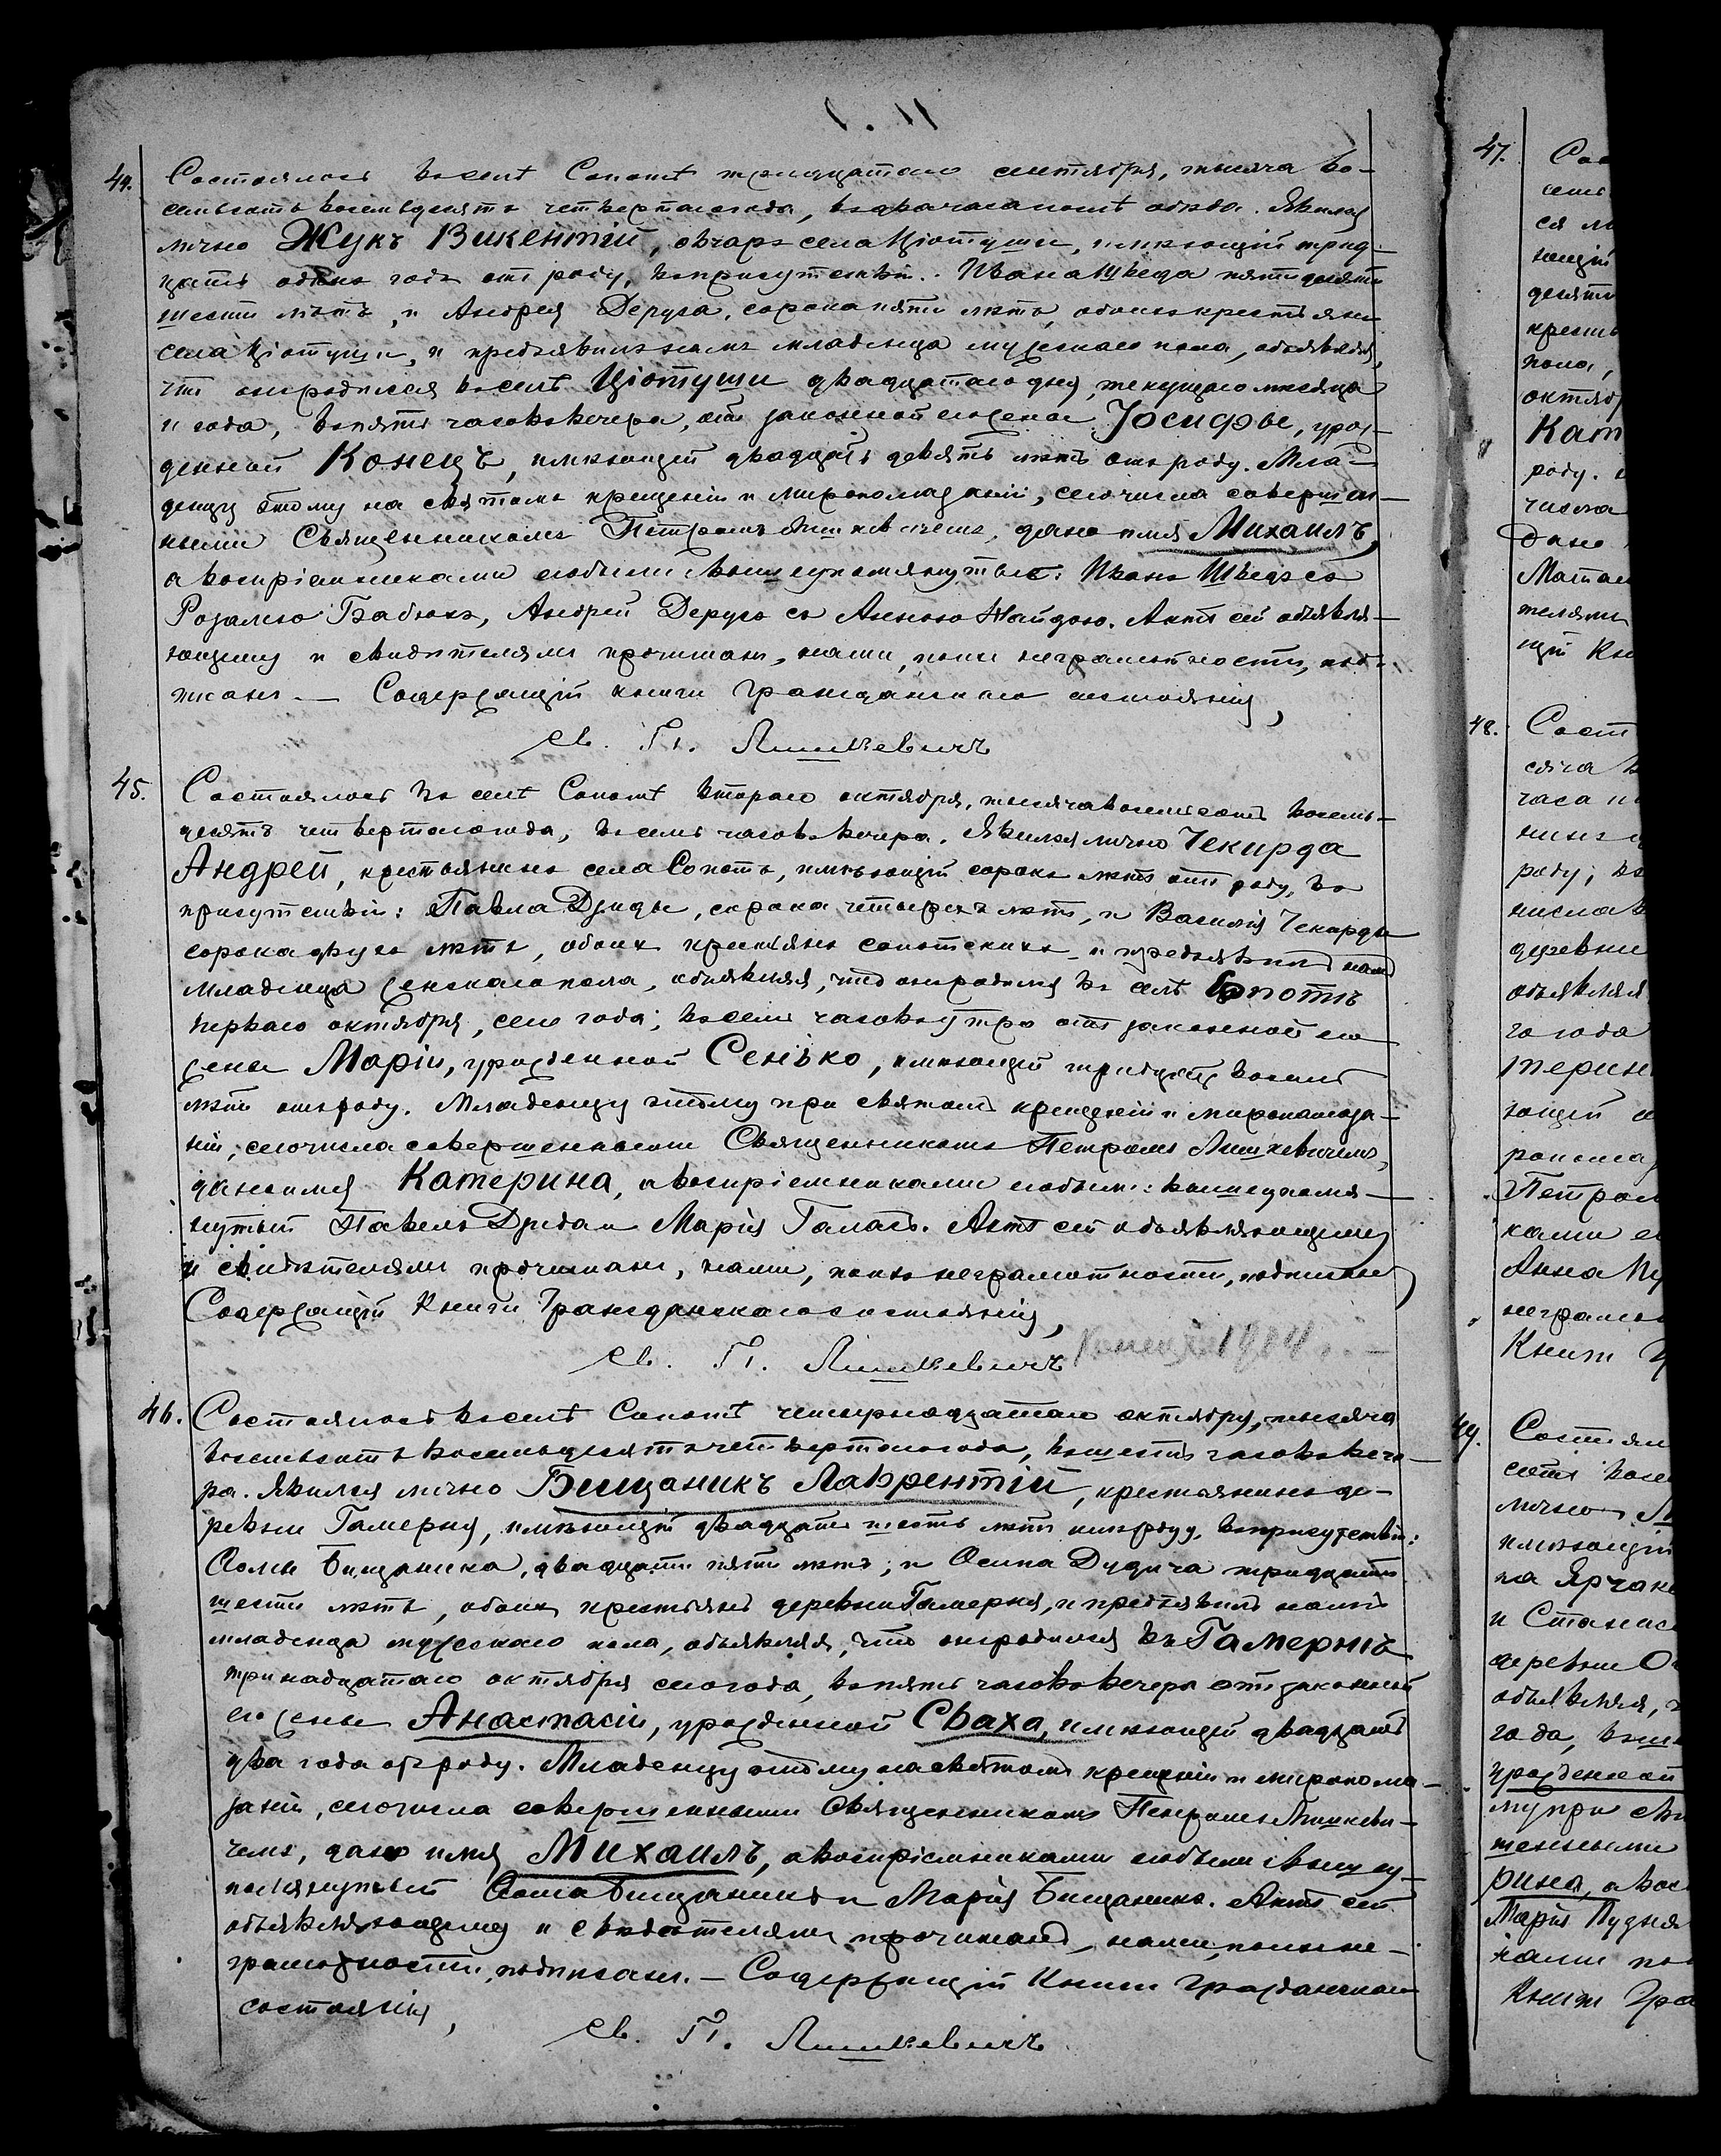 44.
Состоялось въ селѣ Сопотѣ тридцатаго сентября, тысяча во-
семьсотъ восемьдесятъ четвертаго года, въ два часа полѣ обѣда. Явился
лично Жукъ Викентій, овчаръ села Ціотуши, имѣющій трид-
цать одинъ годъ отъ роду, въ присутствіи: Ивана Шведа пятидесяти
шести лѣтъ, и Андрея Деруса, сорока пяти лѣтъ, обоихъ крестьянъ
села Ціотуши, и предъявилъ намъ младенца мужскаго пола, объявляя,
что онъ родился въ селѣ Ціотуши двадцатаго дня, текущаго мѣсяца
и года, въ пять часовъ вечера, отъ законной его жены Іосифы, урож-
денной Конецъ, имѣющей двадцать девять лѣтъ отъ роду. Мла-
денцу этому на святомъ крещеніи и миропомазаніи, сего числа совершен-
ными Священникомъ Петромъ Лишкевичемъ, дано имя Михаилъ,
а воспріемниками его были вышеупомянутые: Иванъ Шведъ съ
Розаліею Бабюкъ, Андрей Дерусъ съ Анною Найдою. Актъ сей объявля-
ющему и свидѣтелямъ прочитанъ, нами, по ихъ неграмотности, под-
писанъ. — Содержащій книги Гражданскаго состоянія,
Св. П. Лишкевичъ
45.
Состоялось въ селѣ Сопотѣ втораго октября, тысяча восемьсотъ восемь-
десятъ четвертаго года, въ семь часовъ вечера. Явился лично Чекирда
Андрей, крестьянинъ села Сопотъ, имѣющій сорокъ лѣтъ отъ роду, въ
присутствіи: Павла Дзиды, сорока четырехъ лѣтъ, и Василія Чекирды
сорока двухъ лѣтъ, обоихъ крестьянъ сопотскихъ, и предъявилъ намъ
младенца женскаго пола, объявляя, что онъ родился въ селѣ Сопотѣ
перваго октября, сего года, въ семь часовъ утра отъ законной его
жены Маріи, урожденной Сенько, имѣющей тридцать восемь
лѣтъ отъ роду. Младенцу этому при святомъ крещеніи и миропомаза-
ніи, сего числа совершенными Священникомъ Петромъ Лишкевичемъ,
дано имя Катерина, а воспріемниками его были: вышеупомя-
нутый Павелъ Дзида и Марія Галасъ. Актъ сей объявляющему
и свидѣтелямъ прочитанъ, нами, по ихъ неграмотности, подписанъ
Содержащій Книги Гражданскаго состоянія,
Св. П. Лишкевичъ
46.
Состоялось въ селѣ Сопотѣ четырнадцатаго октября, тысяча
восемьсотъ восемьдесятъ четвертаго года, въ шесть часовъ вече-
ра. Явился лично Бищаникъ Лаврентій, крестьянинъ де-
ревни Гамерня, имѣющій двадцать шесть лѣтъ отъ роду, въ присутствіи:
Ѳомы Бищаника, двадцати пяти лѣтъ, и Осипа Дудича тридцати
шести лѣтъ, обоихъ крестьянъ деревни Гамерня, и предъявилъ намъ
младенца мужескаго пола, объявляя, что онъ родился въ Гамернѣ
тринадцатаго октября сего года, въ пять часовъ вечера отъ законной
его жены Анастасіи, урожденной Сваха, имѣющей двадцать
два года отъ роду. Младенцу этому на святомъ крещеніи и миропома-
заніи, сего числа совершенными Священникомъ Петромъ Лишкеви-
чемъ, дано имя Михаилъ, а воспріемниками его были: вышеу-
помянутый Ѳома Бищаникъ и Марія Бищаникъ. Актъ сей
объявляющему и свидѣтелямъ прочитанъ, нами, по ихъ не-
грамотности, подписанъ. — Содержащій Книги Гражданскаго
состоянія,
Св. П. Лишкевичъ
47.
ся
нющій
десяти
пола,
октяб
Кат
роду.
числа
дано
Матве
телями
48.
Сост
часа
роду;
числа
деревни
объявляя
го года
терин
ющей
Петром
ками
Анна
неграмо
Книги
49.
Состоял
лично
имѣющій
и Станис
деревни
объявляя,
года,
урожденной
рина, а вос
Марія Пудня
нами
Книги Гра